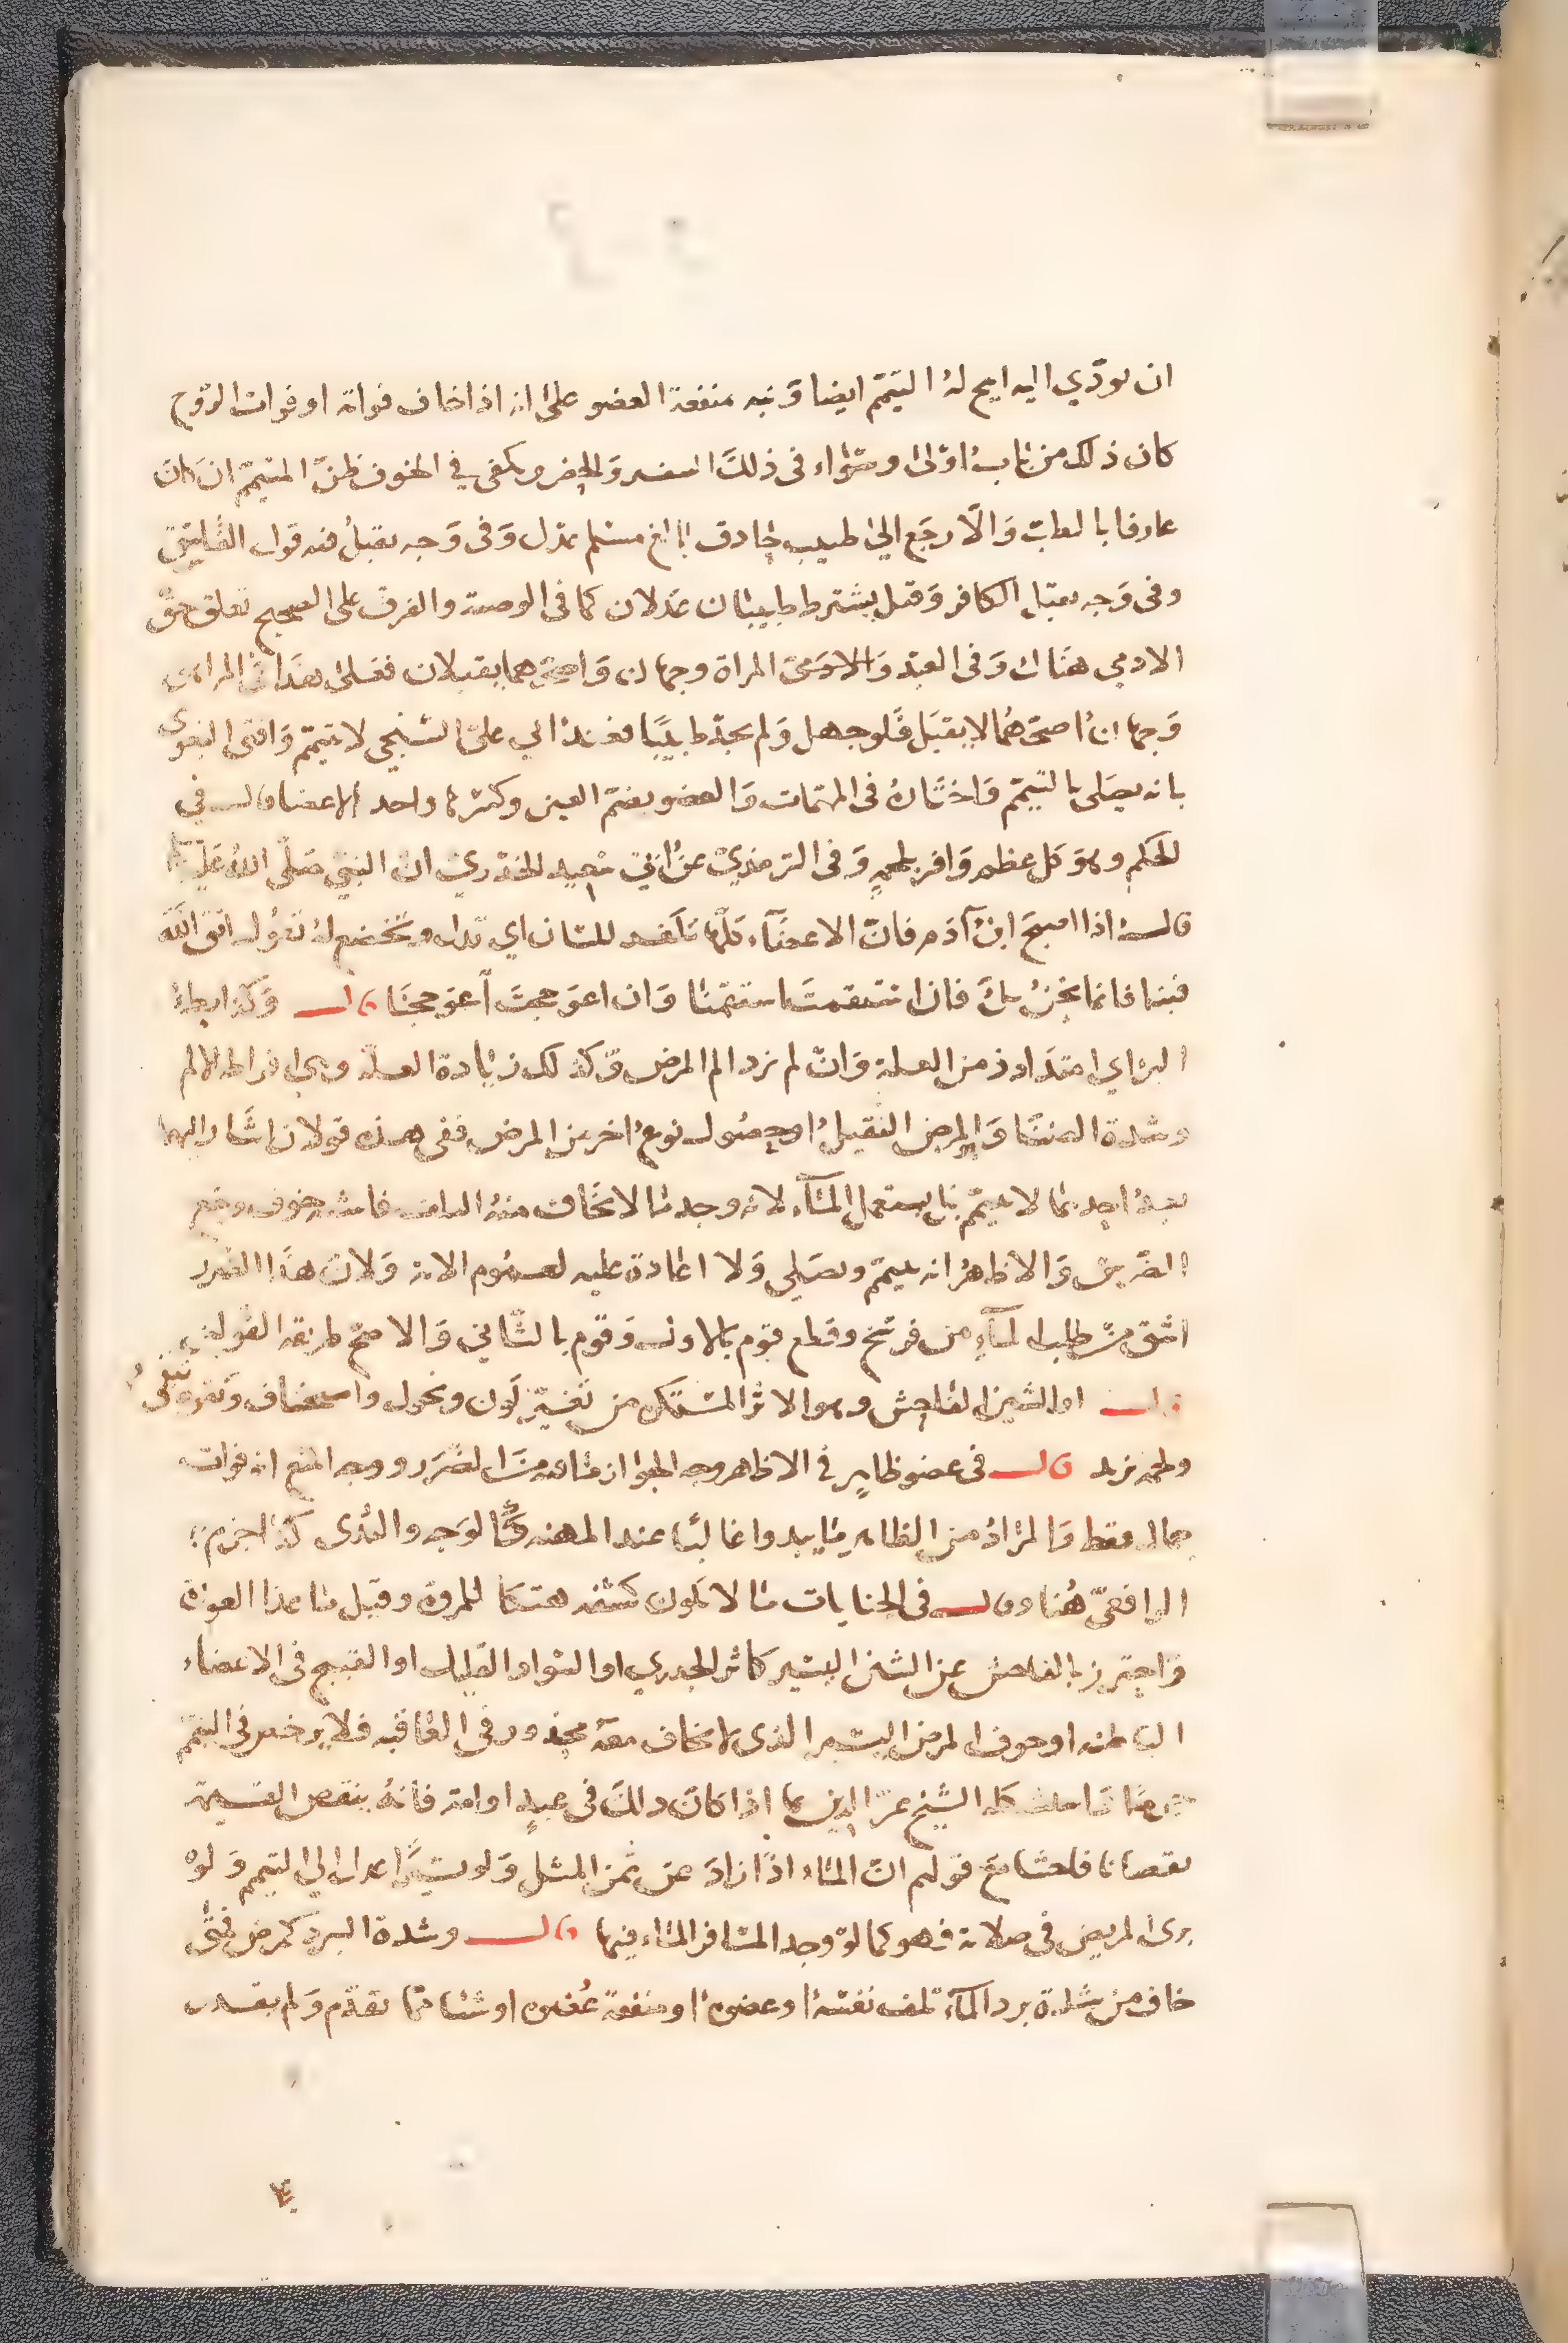 ان يودي اليه ابيح له التيمم ايضا ونبه بمنفعة العضو على انه اذا خاف فواته او فوات الروح
كان ذلك من باب اولى وسواء في ذلك السفر والحضر ويكفي في الخوف ظن المتيمم ان كان
عارفا بالطب والا رجع الى طبيب حاذق بالغ مسلم عدل وفي وجه يقبل فيه قول الفاسق
وفي وجه يقبل الكافر وقيل يشترط طبيبان عدلان كما في الوصية والفرق على الصحيح تعلق حق
الادمي هناك وفي العبد والمراة وجهان واصحهما يقبلان ففي المراهق
وجهان اصحهما لا يقبل فلو جهل ولم يجد طبيبا فعند ابي علي السنجي لا يتيمم وافتى البغوي
بانه يصلي بالتيمم واختاره في المهمات والعضو بضم العين وكسرها واحد الاعضا قال في
المحكم وهو كل عظم وافر بلحم وفي الترمذي عن ابي سعيد الخدري ان النبي صلى الله عليه
قال اذا اصبح ابن آدم فان الاعضآء كلها تكفر للسان اي تذل وتخضع له تقول اتق الله
فينا فانما نحن بك فان استقمت استقمنا وان اعوججت اعوججنا قال وكذا بطء
البرء اي امتداد زمن العلة وان لم يزد الم المرض وكذلك زيادة العلة وهي افراط الالم
وشدة الضنا والمرض الثقيل او حصول نوع اخر من المرض ففي هذه قولان اشار اليهما
بعد احدهما لا يتيمم بل يستعمل المآء لانه وجد ما لا يخاف منه التلف فاشبه خوف وجع
الضرس والاظهر انه يتيمم ويصلي ولا اعادة عليه لعموم الاية ولان هذا الضرر
اشق من طلب المآء من فرسخ وقطع قوم بالاول وقوم بالثاني والاصح طريقة القولين
قال او الشين الفاحش وهو الاثر المستكره من تغير لون ونحول واستحشاف وثغرة تبقى
ولحمة تزيد قال في عضو ظاهر في الاظهر وجه الجواز ما فيه من الضرر ووجه المنع انه فوات
جمال فقط والمراد من الظاهر ما يبدوا غالبا عند المهنة كالوجه واليدين كذا جزم به
الرافعي هنا وقال في الجنايات ما لا يكون كشفه هتكا للمروة وقيل ما عدا العورة
واحترز بالفاحش عن الشين اليسير كاثر الجدري او السواد القليل او القبيح في الاعضاء
الباطنة او خوف المرض اليسير الذي لا يخاف معه محذور في العاقبه فلا يرخص في التيمم
جزما واستشكله الشيخ عز الدين بما اذا كان ذلك في عبد او امة فانه ينقص القيمة
نقصانا فاحشا مع قولهم ان الماء اذا زاد عن ثمن المثل ولو يسيرا عدل الى التيمم ولو
برى المريض في صلاته فهو كما لو وجد المسافر الماء فيها قال وشدة البرد كمرض فمتى
خاف من شدة برد المآء تلف نفسه او عضوه او منفعة عضوه او شيا مما تقدم ولم يقدر